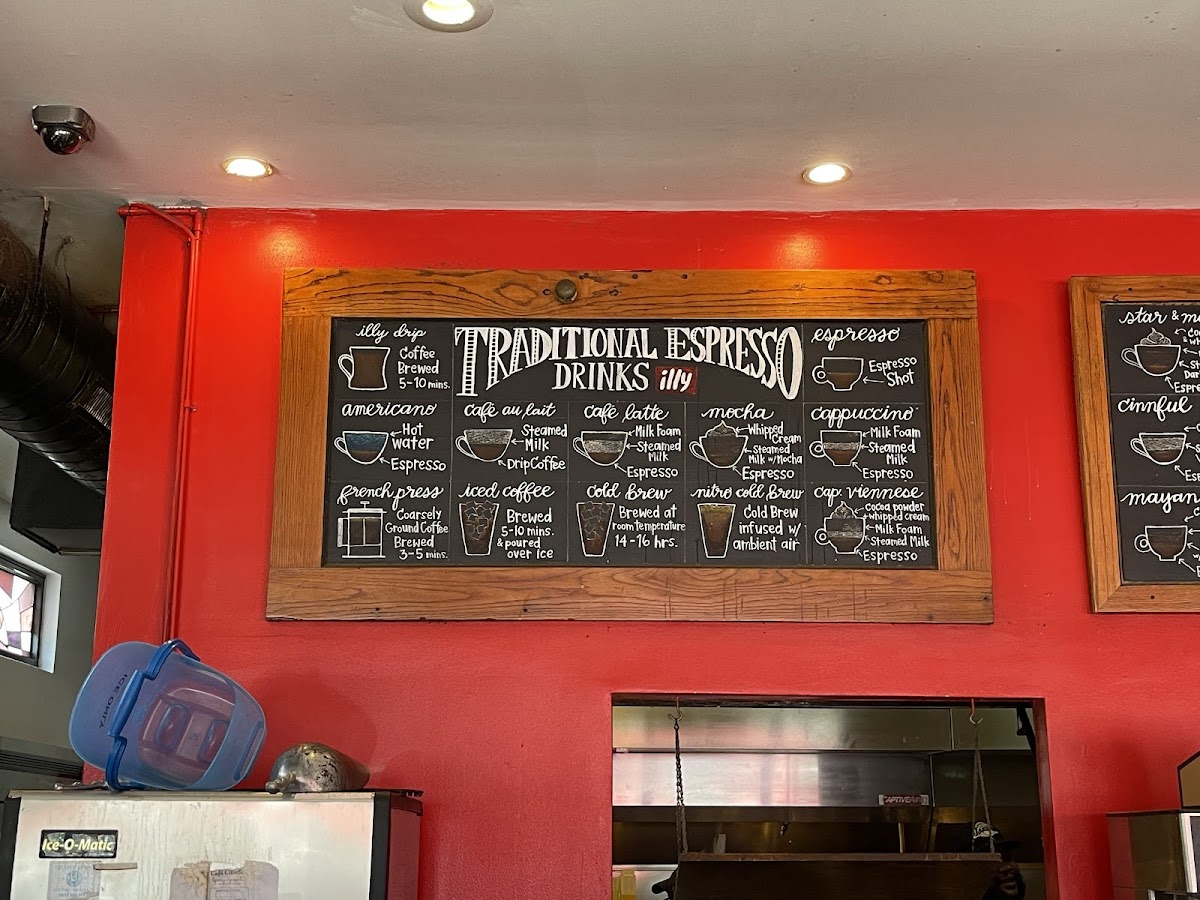 illy drip
Coffee
Brewed
5-10 mins.
TRADITIONAL ESPRESSO
DRINKS illy
espresso
Espresso
Shot
americano
Hot
water
Espresso
café au lait
Steamed
Milk
Drip Coffee
café latte
Milk Foam
Steamed
Milk
Espresso
mocha
Whipped
Cream
Steamed
Milk w/Mocha
Espresso
cappuccino
Milk Foam
Steamed
Milk
Espresso
french press
Coarsely
Ground Coffee
Brewed
3-5 mins.
iced coffee
Brewed
5-10 mins.
& poured
over Ice
cold brew
Brewed at
room temperature
14-16 hrs.
nitro cold brew
Cold Brew
infused w/
ambient air
cap. viennese
cocoa powder
whipped cream
Milk Foam
Steamed Milk
Espresso
star &
cinnful
mayan
ICE ONLY
Ice-O-Matic